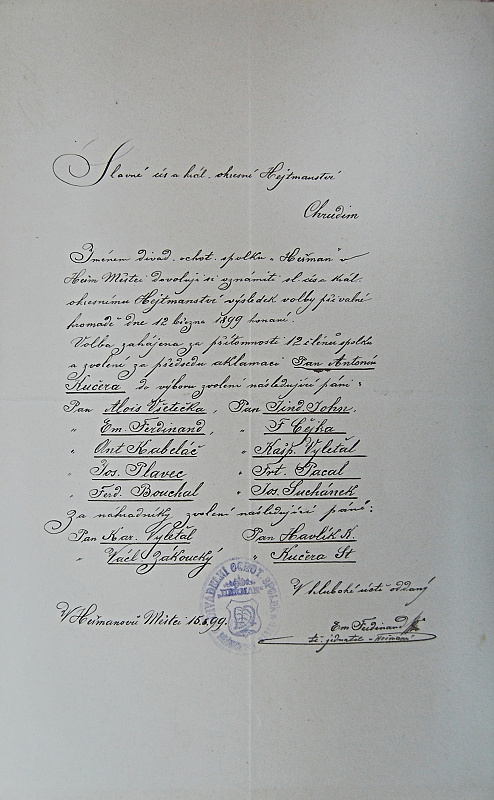 Slavné cís a král. okresní Hejtmanství
Chrudim
Jménem divad. ochot. spolku „Heřman" v
Heřm Městci dovoluji si oznámiti sl. cís a král.
okresnímu Hejtmanství výsledek volby při valné
hromadě dne 12 března 1899 konané.
Volba zahájena za přítomnosti 12 členů spolku
a zvolení za předsedu aklamací Pan Antonín
Kučera do výboru zvoleni následující páni:
Pan Alois Všetečka, Pan Jind. John,
" Em Ferdinand, " F Čejka
" Ant Kabeláč " Kašp. Vyletal
" Jos. Plavec " Frt. Pacal
" Ferd. Bouchal " Jos. Suchánek
Za náhradníky zvoleni následující páni:
Pan Kar. Vyletal Pan Havlík K.
" Václ Zákoucký " Kučera St
V hluboké úctě oddaný
V Heřmanově Městci 99.
Em Ferdinand
jednatel „Heřmana"
DIVADELNÍ OCHOT. SPOLEK
"HEŘMAN"